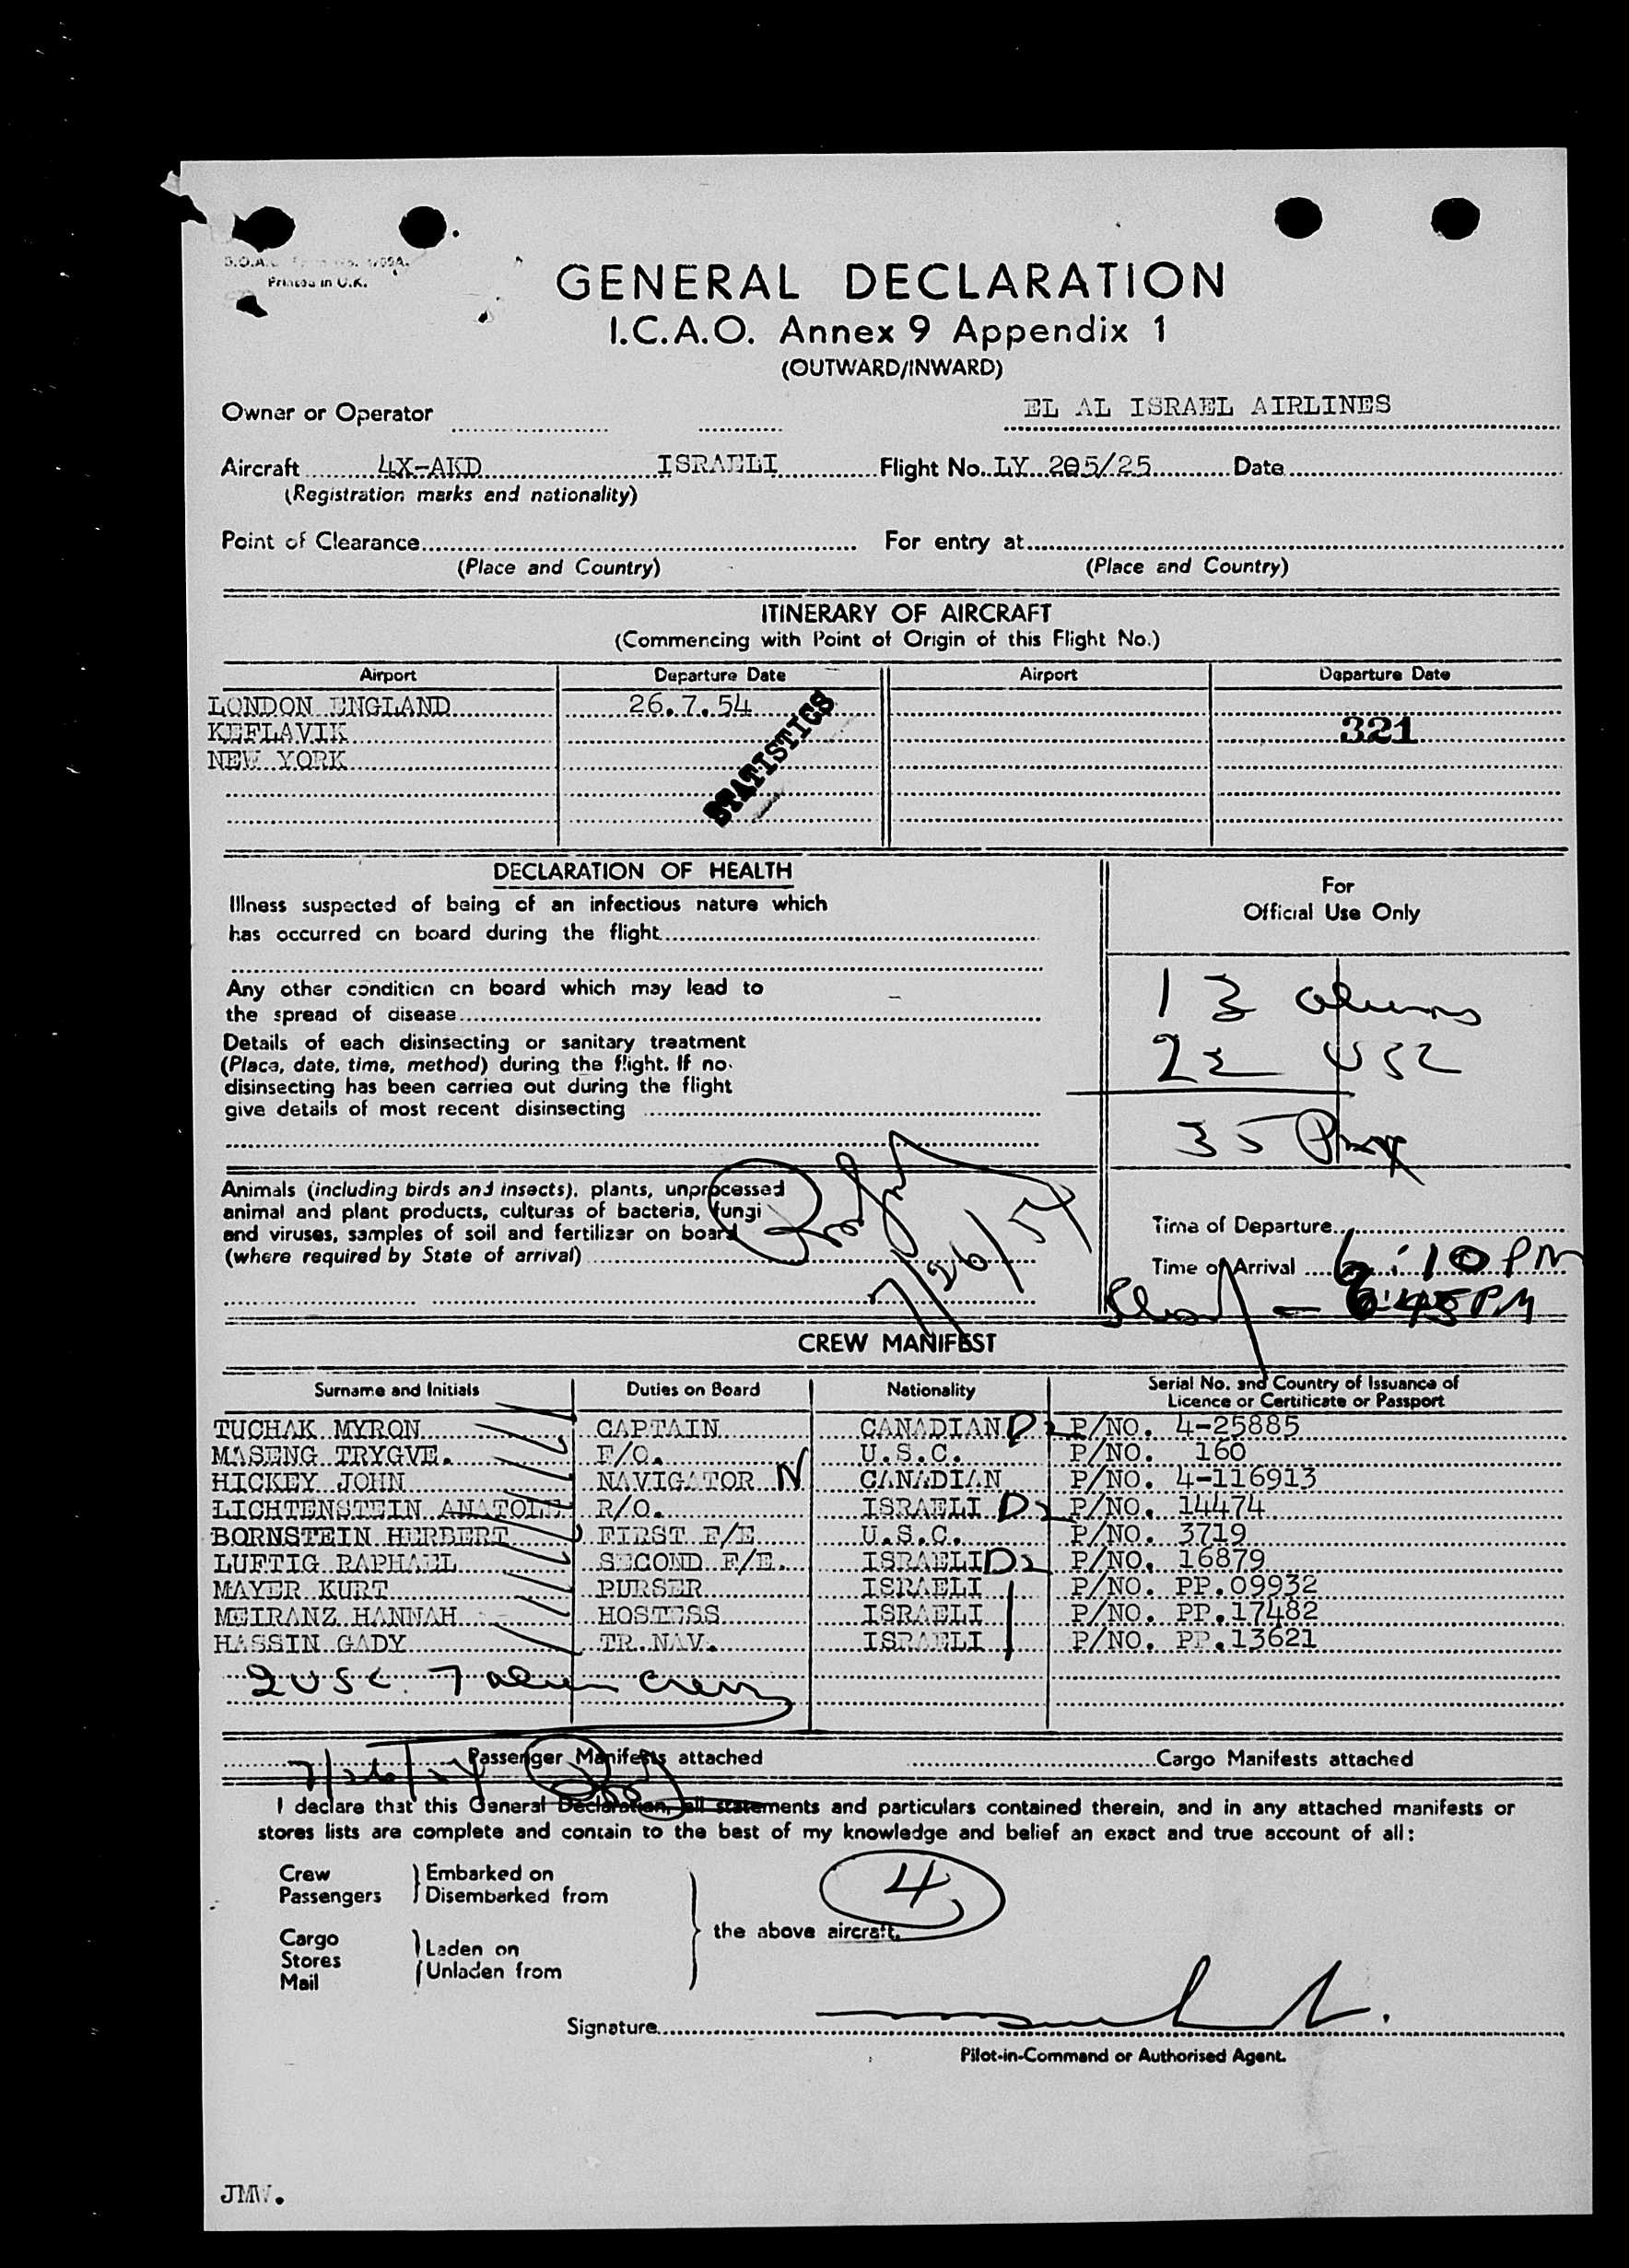 Printed in U.K.
GENERAL DECLARATION
I.C.A.O. Annex 9 Appendix 1
(OUTWARD/INWARD)
Owner or Operator EL AL ISRAEL AIRLINES
Aircraft 4X-AKD ISRAELI Flight No. LY 205/25 Date
(Registration marks and nationality)
Point of Clearance For entry at
(Place and Country) (Place and Country)
ITINERARY OF AIRCRAFT
(Commencing with Point of Origin of this Flight No.)
Airport Departure Date Airport Departure Date
LONDON ENGLAND 26.7.54
KEFLAVIK 321
NEW YORK
STATISTICS
DECLARATION OF HEALTH
Illness suspected of being of an infectious nature which
has occurred on board during the flight
Any other condition on board which may lead to
the spread of disease
Details of each disinsecting or sanitary treatment
(Place, date, time, method) during the flight. If no
disinsecting has been carried out during the flight
give details of most recent disinsecting
For
Official Use Only
13 aliens
22 USC
35 Pax
Animals (including birds and insects), plants, unprocessed
animal and plant products, cultures of bacteria, fungi
and viruses, samples of soil and fertilizer on board
(where required by State of arrival)
7/26/54
Time of Departure
Time of Arrival 6:10 PM
6:45 PM
CREW MANIFEST
Surname and Initials Duties on Board Nationality Serial No. and Country of Issuance of
Licence or Certificate or Passport
TUCHAK MYRON CAPTAIN CANADIAN D2 P/NO. 4-25885
MASENG TRYGVE. F/O. U.S.C. P/NO. 160
HICKEY JOHN NAVIGATOR N CANADIAN P/NO. 4-116913
LICHTENSTEIN ANATOLE R/O. ISRAELI D2 P/NO. 14474
BORNSTEIN HERBERT FIRST F/E U.S.C. P/NO. 3719
LUFTIG RAPHAEL SECOND F/E. ISRAELI D2 P/NO. 16879
MAYER KURT PURSER ISRAELI P/NO. PP.09932
MEIRANZ HANNAH HOSTESS ISRAELI P/NO. PP.17482
HASSIN GADY TR.NAV. ISRAELI P/NO. PP.13621
2 USC. 7 alien crew
7/26/54 Passenger Manifests attached Cargo Manifests attached
I declare that this General Declaration, all statements and particulars contained therein, and in any attached manifests or
stores lists are complete and contain to the best of my knowledge and belief an exact and true account of all:
Crew Embarked on
Passengers Disembarked from
4
the above aircraft.
Cargo Laden on
Stores Unladen from
Mail
Signature
Pilot-in-Command or Authorised Agent.
JMW.